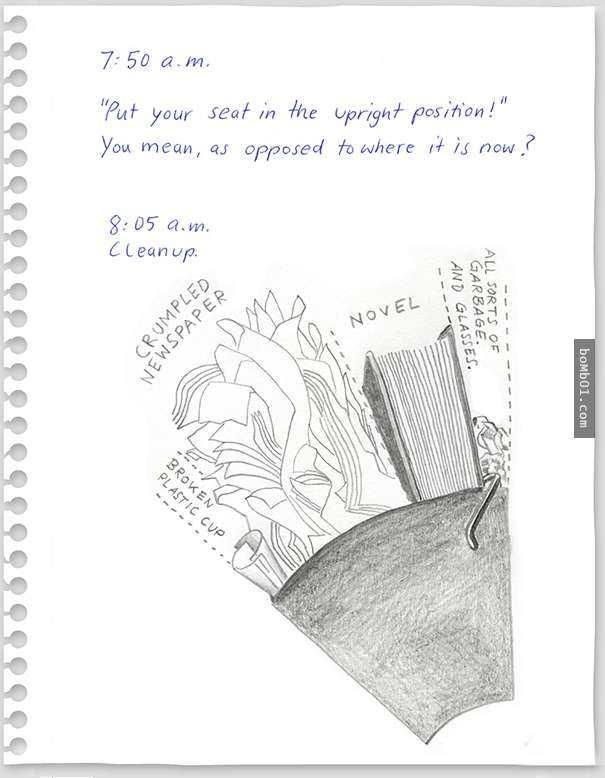 7:50 a.m.
"Put your seat in the upright position!"
You mean, as opposed to where it is now?
8:05 a.m.
Cleanup.
CRUMPLED
NEWSPAPER
NOVEL
ALL SORTS OF
GARBAGE.
AND GLASSES.
BROKEN
PLASTIC CUP
bomb01.com